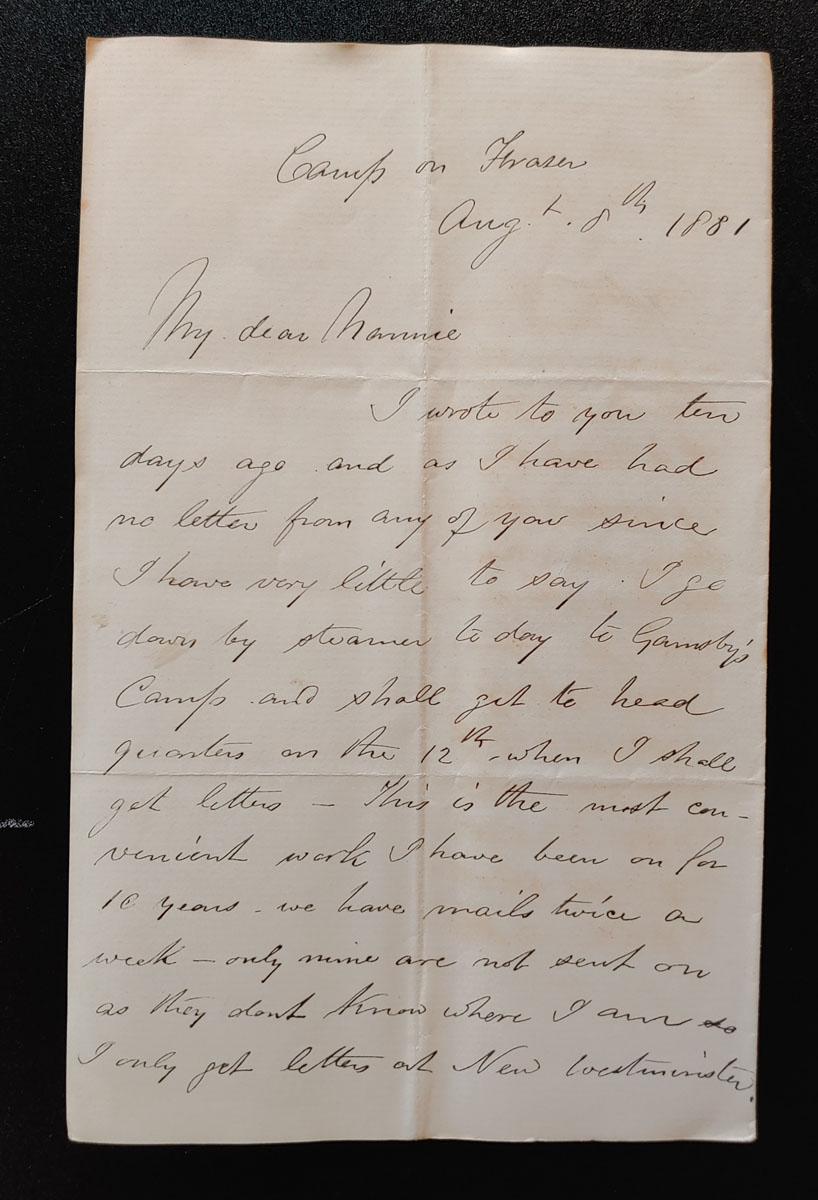 Camp on Fraser
Augt. 8th. 1881
My dear Nannie
I wrote to you ten
days ago and as I have had
no letter from any of you since
I have very little to say. I go
down by steamer to day to Gamsby's
Camp and shall get to head
quarters on the 12th when I shall
get letters – This is the most con-
venient work I have been on for
10 years - we have mails twice a
week – only mine are not sent on
as they dont know where I am so
I only get letters at New Westminster.